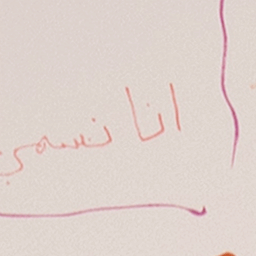 انا نسمي